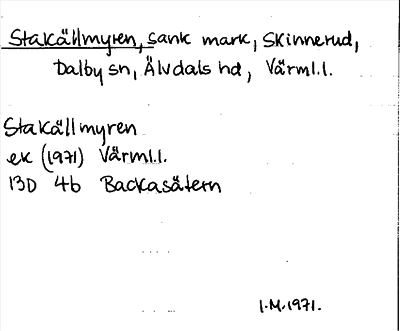 Stakällmyren, sank mark, Skinnerud,
Dalby sn, Älvdals hd, Värml.l.
Stakällmyren
ek (1971) Värml.l.
13D 4b Backasätern
I.M.1971.